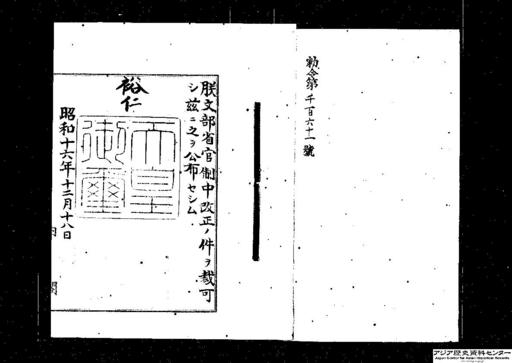 勅令第千百六十一號
朕文部省官制中改正ノ件ヲ裁可
シ玆ニ之ヲ公布セシム
裕仁
天皇御璽
昭和十六年十二月十八日
内閣
アジア歴史資料センター
Japan Center for Asian Historical Records